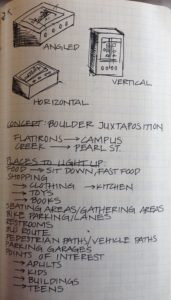 ANGLED
VERTICAL
HORIZONTAL
CONCEPT: BOULDER JUXTAPOSITION
FLATIRONS → CAMPUS
CREEK → PEARL ST.
PLACES TO LIGHT UP:
FOOD → SIT DOWN, FAST FOOD
SHOPPING
→ CLOTHING → KITCHEN
→ TOYS
→ BOOKS
SEATING AREAS/GATHERING AREAS
BIKE PARKING/LANES
RESTROOMS
BUS ROUTE
PEDESTRIAN PATHS/VEHICLE PATHS
PARKING GARAGES
POINTS OF INTEREST
→ ADULTS
→ KIDS
→ BUILDINGS
→ TEENS